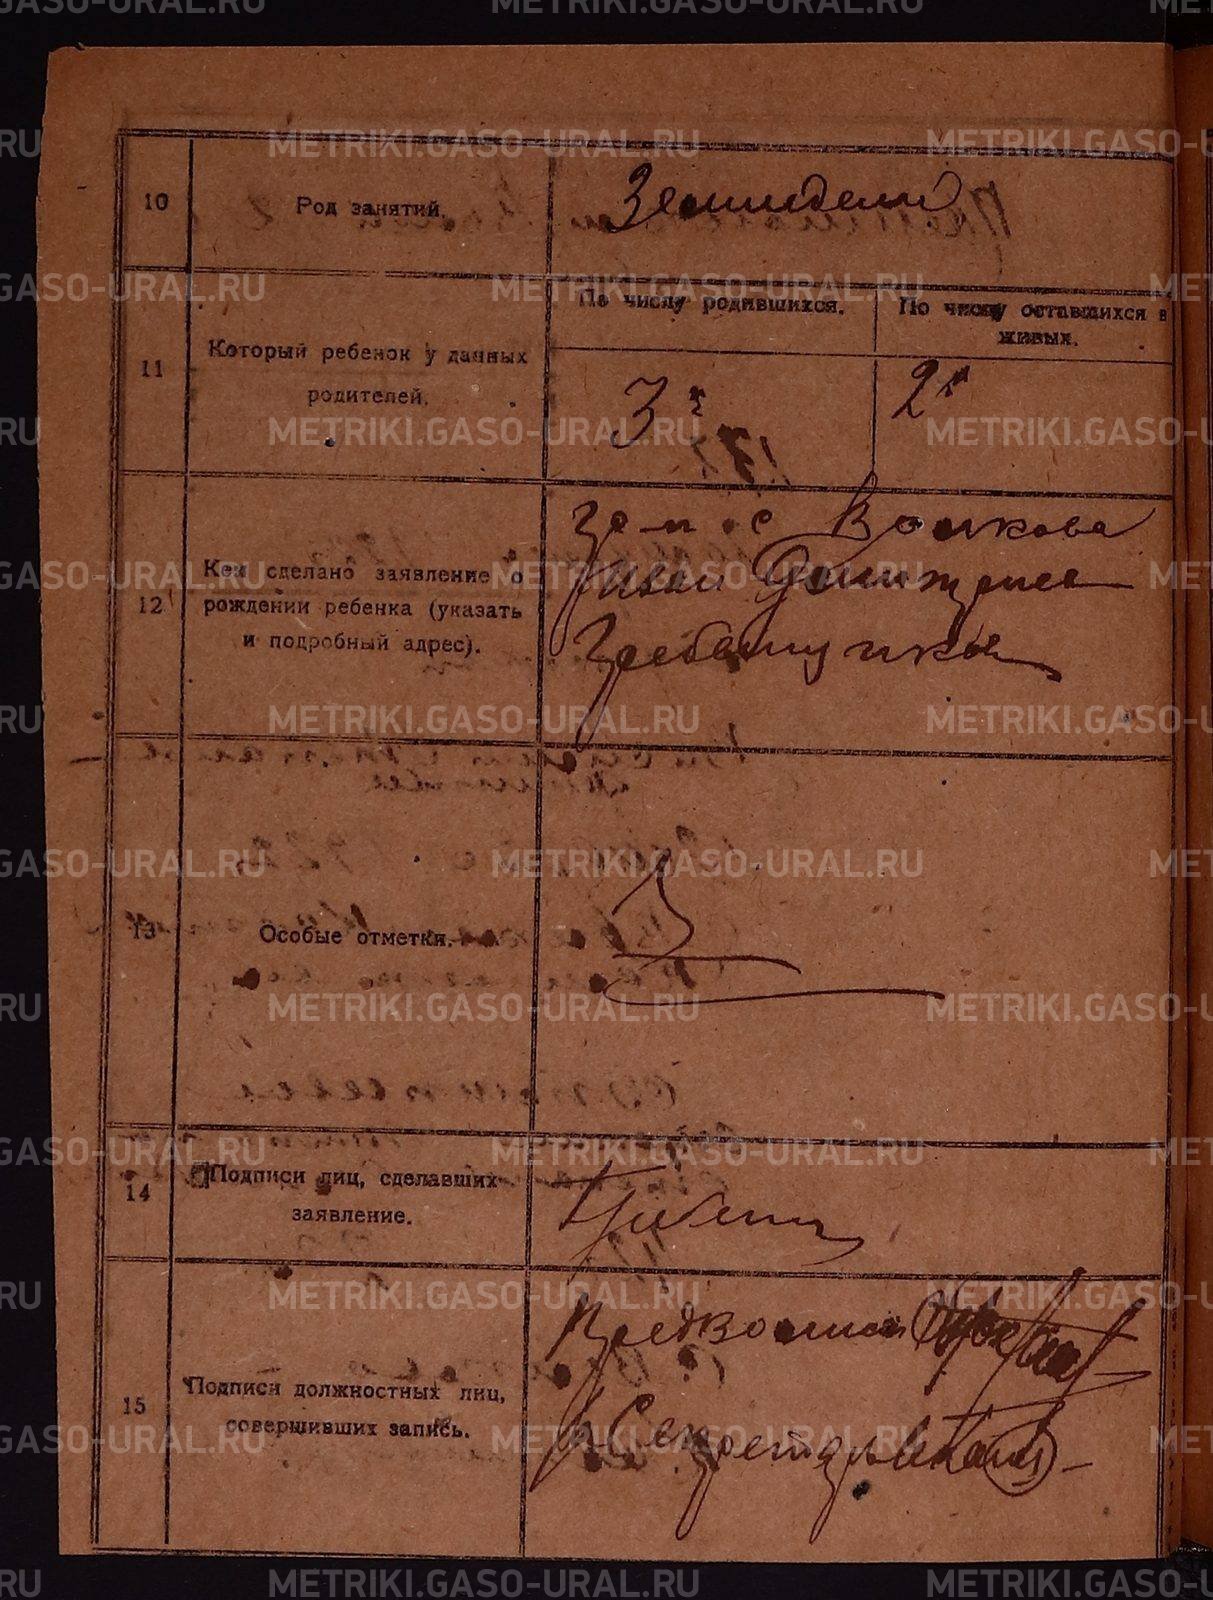 METRIKI.GASO-URAL.RU
10
Род занятий.
Земледел
11
Который ребенок у данных
родителей.
По числу родившихся.
По числу оставшихся в
живых.
3й
2й
12
Кем сделано заявление о
рождении ребенка (указать
и подробный адрес).
Волкова
Иван Дмитриев
Гребенщиков
13
Особые отметки.
14
Подписи лиц, сделавших
заявление.
Гребенщ
15
Подписи должностных лиц,
совершивших запись.
Предволисп
Секретарь